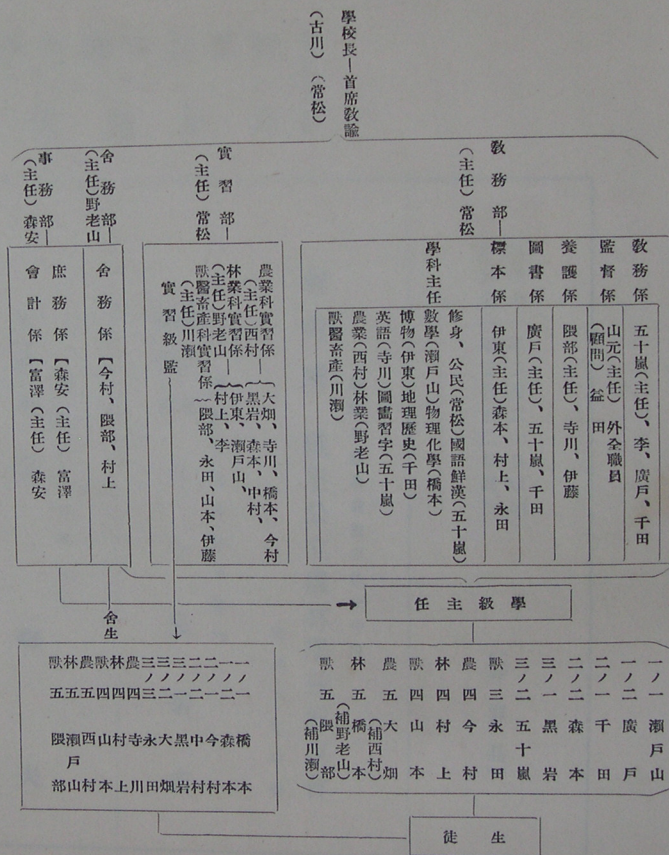 學校長―首席教諭
（古川）（常松）
教務部―
（主任）常松
教務係
五十嵐（主任）、李、廣戸、千田
監督係
山元（主任）外全職員
（顧問）益田
養護係
隈部（主任）、寺川、伊藤
圖書係
廣戸（主任）、五十嵐、千田
標本係
伊東（主任）森本、村上、永田
學科主任
修身、公民（常松）國語鮮漢（五十嵐）
數學（瀬戸山）物理化學（橋本）
博物（伊東）地理歷史（千田）
英語（寺川）圖畫習字（五十嵐）
農業（西村）林業（野老山）
獸醫畜產（川瀬）
實習部―
（主任）常松
農業科實習係―大畑、寺川、橋本、今村
（主任）西村 黒岩、森本、中村、
林業科實習係―伊東、瀬戸山、
（主任）野老山 村上、李
獸醫畜產科實習係 隈部、永田、山本、伊藤
（主任）川瀬
實習級監
舍務部―
（主任）野老山
舍務係【今村、隈部、村上
事務部―
（主任）森安
庶務係【森安（主任）富澤
會計係【富澤（主任）森安
學級主任
一ノ一 瀬戸山
一ノ二 廣戸
二ノ一 千田
二ノ二 森本
三ノ一 黒岩
三ノ二 五十嵐
獸三 永田
農四 今村
林四 村上
獸四 山本
農五 大畑（補西村）
林五 橋本（補野老山）
獸五 隈部（補川瀬）
舍生
一ノ一 橋本
一ノ二 森本
二ノ一 今村
二ノ二 中村
三ノ一 黒岩
三ノ二 大畑
三ノ三 永田
農四 寺川
林四 村上
獸四 山本
農五 西村
林五 瀬戸山
獸五 隈部
生徒